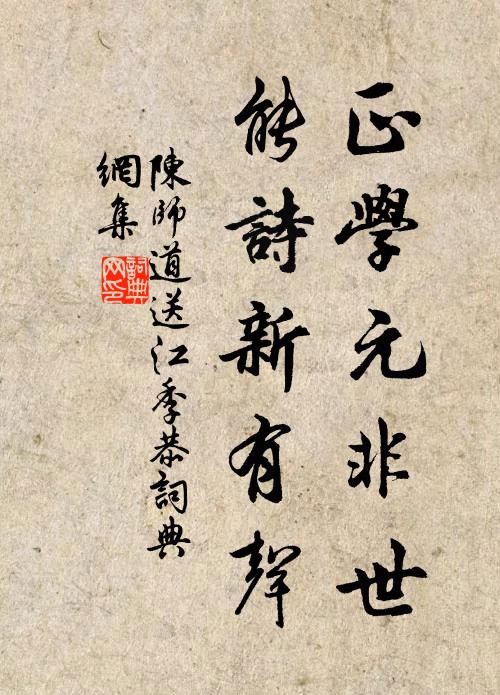 正學元非世
能詩新有聲
陳師道送江季恭詞典
網集
詞典網印